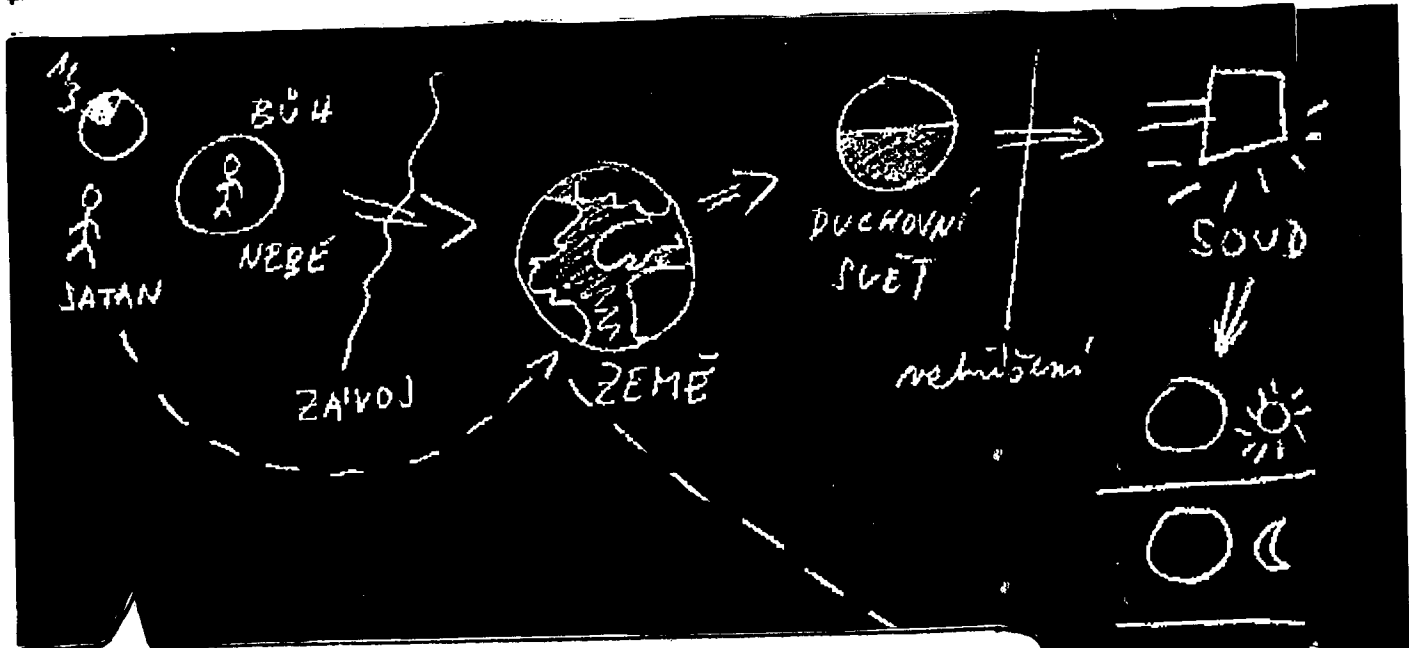 1/3
BŮH
NEBE
SATAN
ZÁVOJ
ZEMĚ
DUCHOVNÍ
SVĚT
SOUD